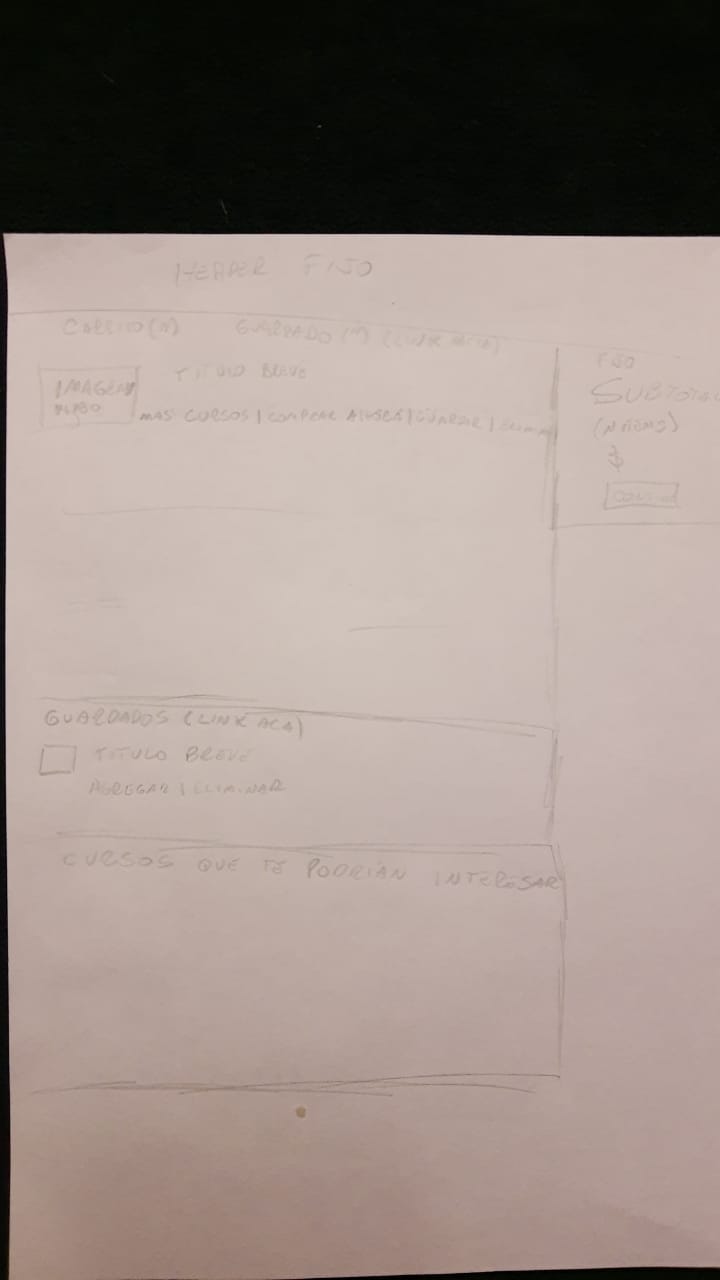 HEADER FIJO
CARRITO (N) GUARDADO (N) (LINK ACA)
IMAGEN
TITULO BREVE
MAS CURSOS | COMPRAR AHORA | GUARDAR | ELIMINAR
FIJO
SUBTOTAL
(N ITEMS)
$
GUARDADOS (LINK ACA)
TITULO BREVE
AGREGAR | ELIMINAR
CURSOS QUE TE PODRIAN INTERESAR